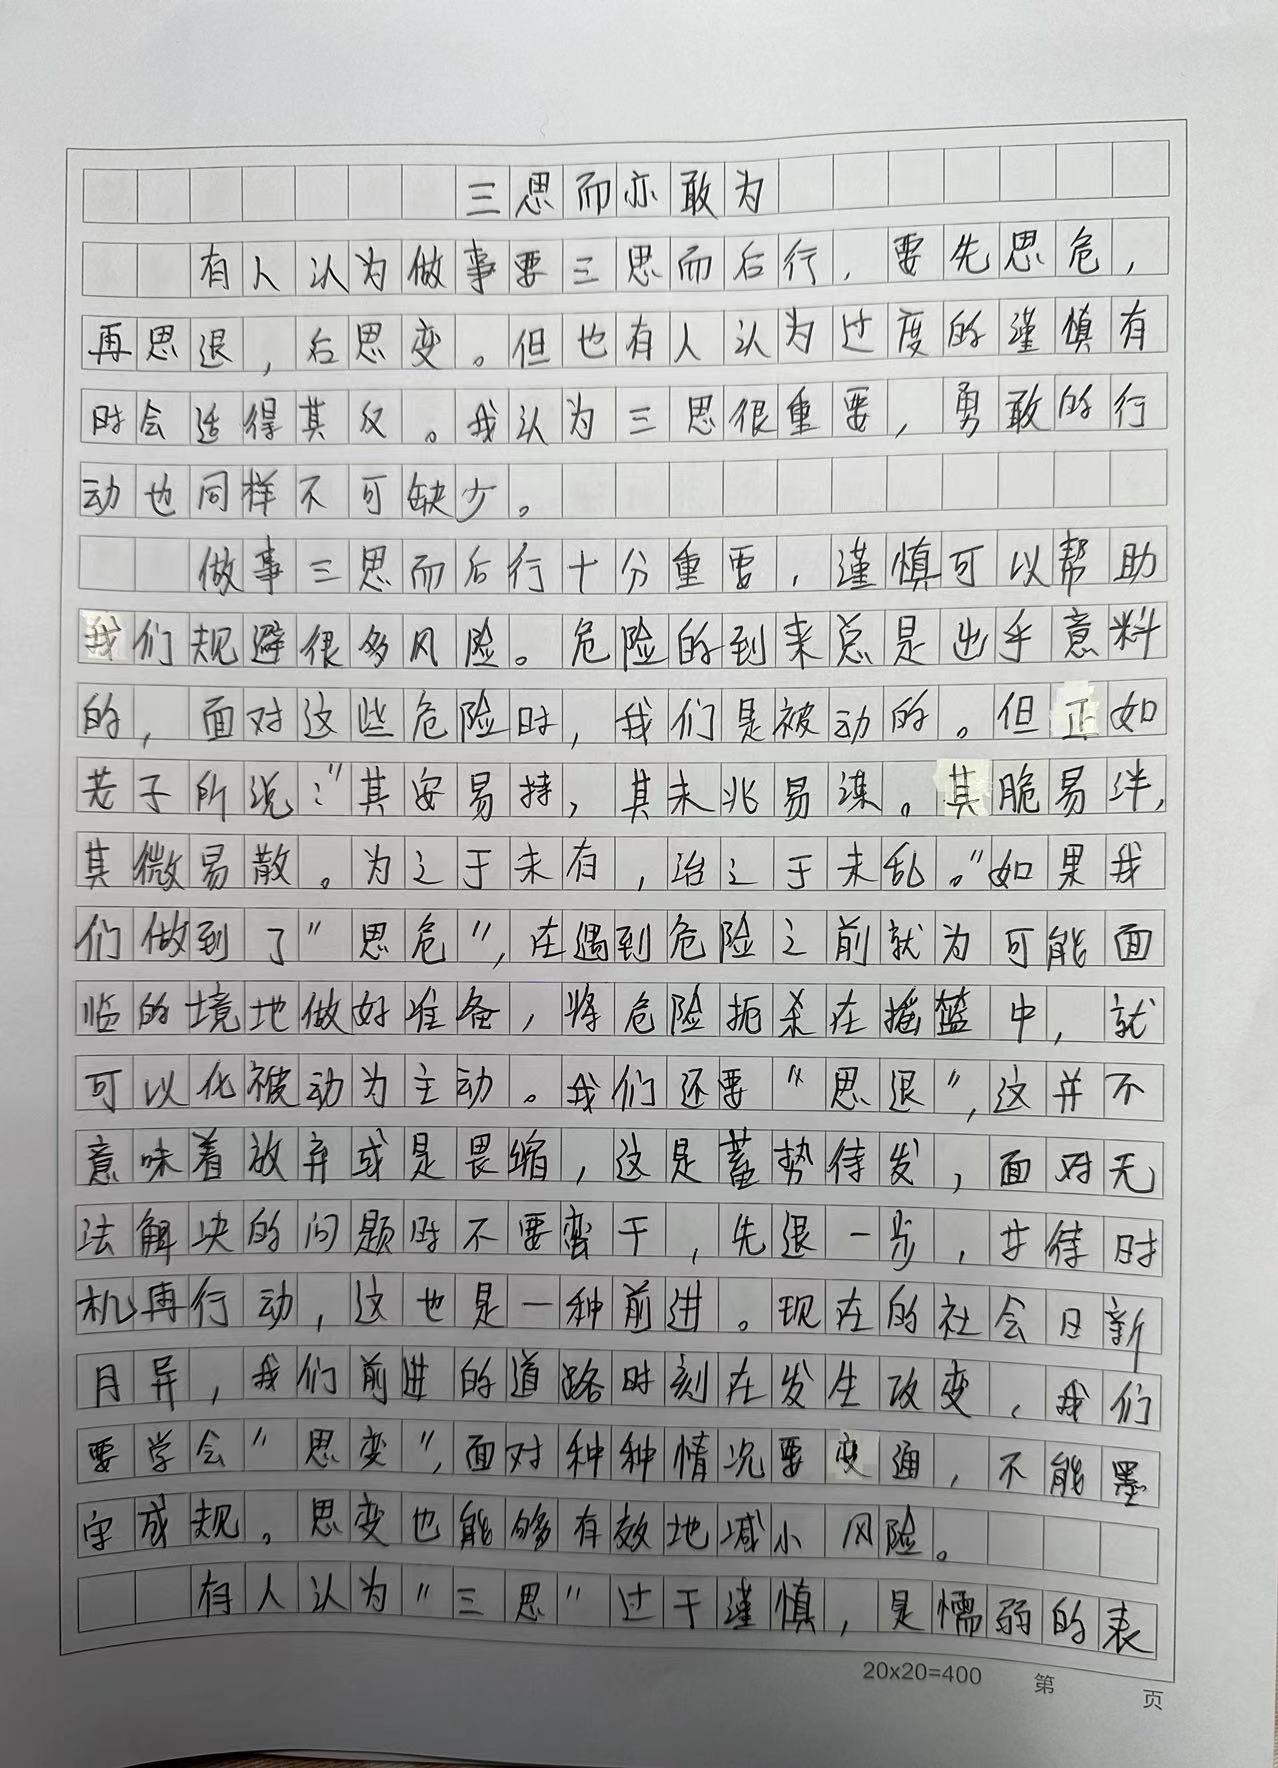 三思而亦敢为
有人认为做事要三思而后行，要先思危，
再思退，后思变。但也有人认为过度的谨慎有
时会适得其反。我认为三思很重要，勇敢的行
动也同样不可缺少。
做事三思而后行十分重要，谨慎可以帮助
我们规避很多风险。危险的到来总是出乎意料
的，面对这些危险时，我们是被动的。但正如
老子所说：“其安易持，其未兆易谋。其脆易泮，
其微易散。为之于未存，治之于未乱。”如果我
们做到了“思危”，在遇到危险之前就为可能面
临的境地做好准备，将危险扼杀在摇篮中，就
可以化被动为主动。我们还要“思退”，这并不
意味着放弃或是畏缩，这是蓄势待发，面对无
法解决的问题时不要蛮干，先退一步，等待时
机再行动，这也是一种前进。现在的社会日新
月异，我们前进的道路时刻在发生改变，我们
要学会“思变”，面对种种情况要变通，不能墨
守成规。思变也能够有效地减小风险。
有人认为“三思”过于谨慎，是懦弱的表
20x20=400 第 页